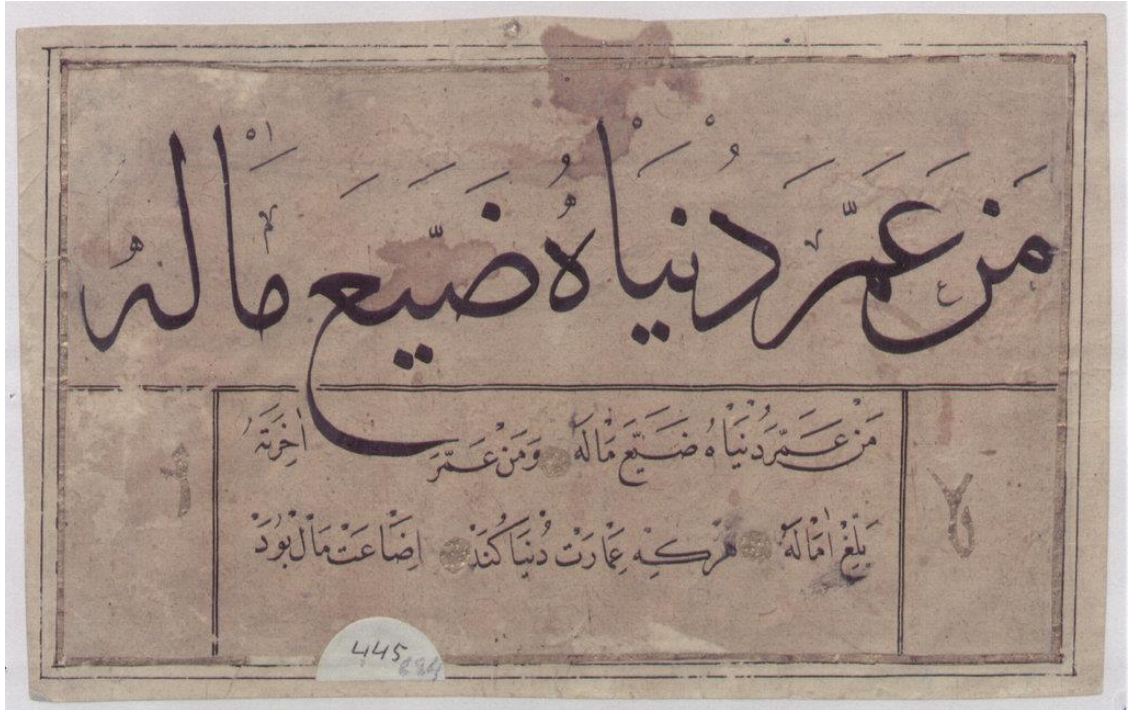 مَن عَمَّرَ دُنيَاهُ ضَيَّعَ مَالَهُ
مَنْ عَمَّرَ دُنْيَاهُ ضَيَّعَ مَالَهُ وَمَنْ عَمَّرَ اٰخِرَتَهُ
بَلَغَ اٰمَالَهُ هَرْ كِه عِمَارَتْ دُنْيَا كُنَدْ اِضَاعَتْ مَالْ بُوَدْ
445